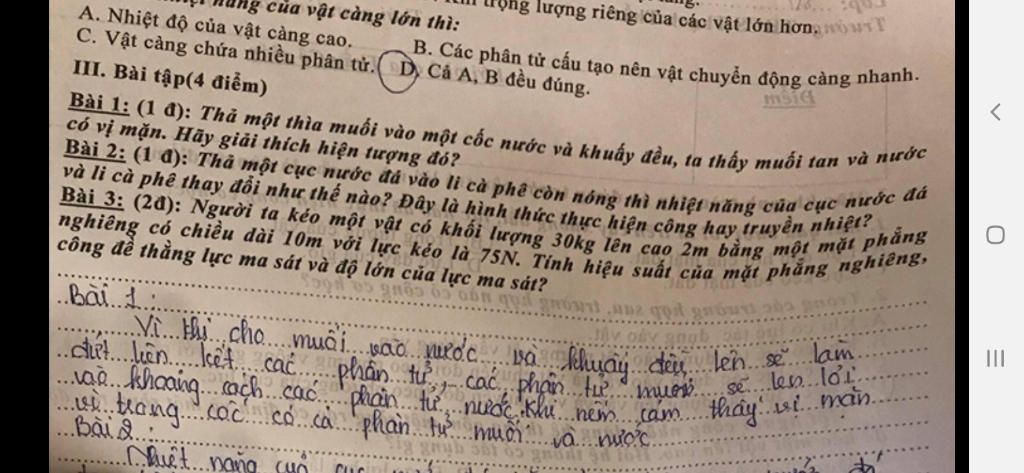 năng của vật càng lớn thì:
trọng lượng riêng của các vật lớn hơn.
A. Nhiệt độ của vật càng cao.
B. Các phân tử cấu tạo nên vật chuyển động càng nhanh.
C. Vật càng chứa nhiều phân tử.
D. Cả A, B đều đúng.
III. Bài tập(4 điểm)
Bài 1: (1 đ): Thả một thìa muối vào một cốc nước và khuấy đều, ta thấy muối tan và nước
có vị mặn. Hãy giải thích hiện tượng đó?
Bài 2: (1 đ): Thả một cục nước đá vào li cà phê còn nóng thì nhiệt năng của cục nước đá
và li cà phê thay đổi như thế nào? Đây là hình thức thực hiện công hay truyền nhiệt?
Bài 3: (2đ): Người ta kéo một vật có khối lượng 30kg lên cao 2m bằng một mặt phẳng
nghiêng có chiều dài 10m với lực kéo là 75N. Tính hiệu suất của mặt phẳng nghiêng,
công để thẳng lực ma sát và độ lớn của lực ma sát?
Bài 1:
Vì khi cho muối vào nước và khuấy đều lên sẽ làm
đứt liên kết các phân tử, các phân tử muối sẽ len lỏi
vào khoảng cách các phân tử nước. Khi nếm cảm thấy vị mặn
vì trong cốc có cả phân tử muối và nước
Bài 2:
Nhiệt năng của cục